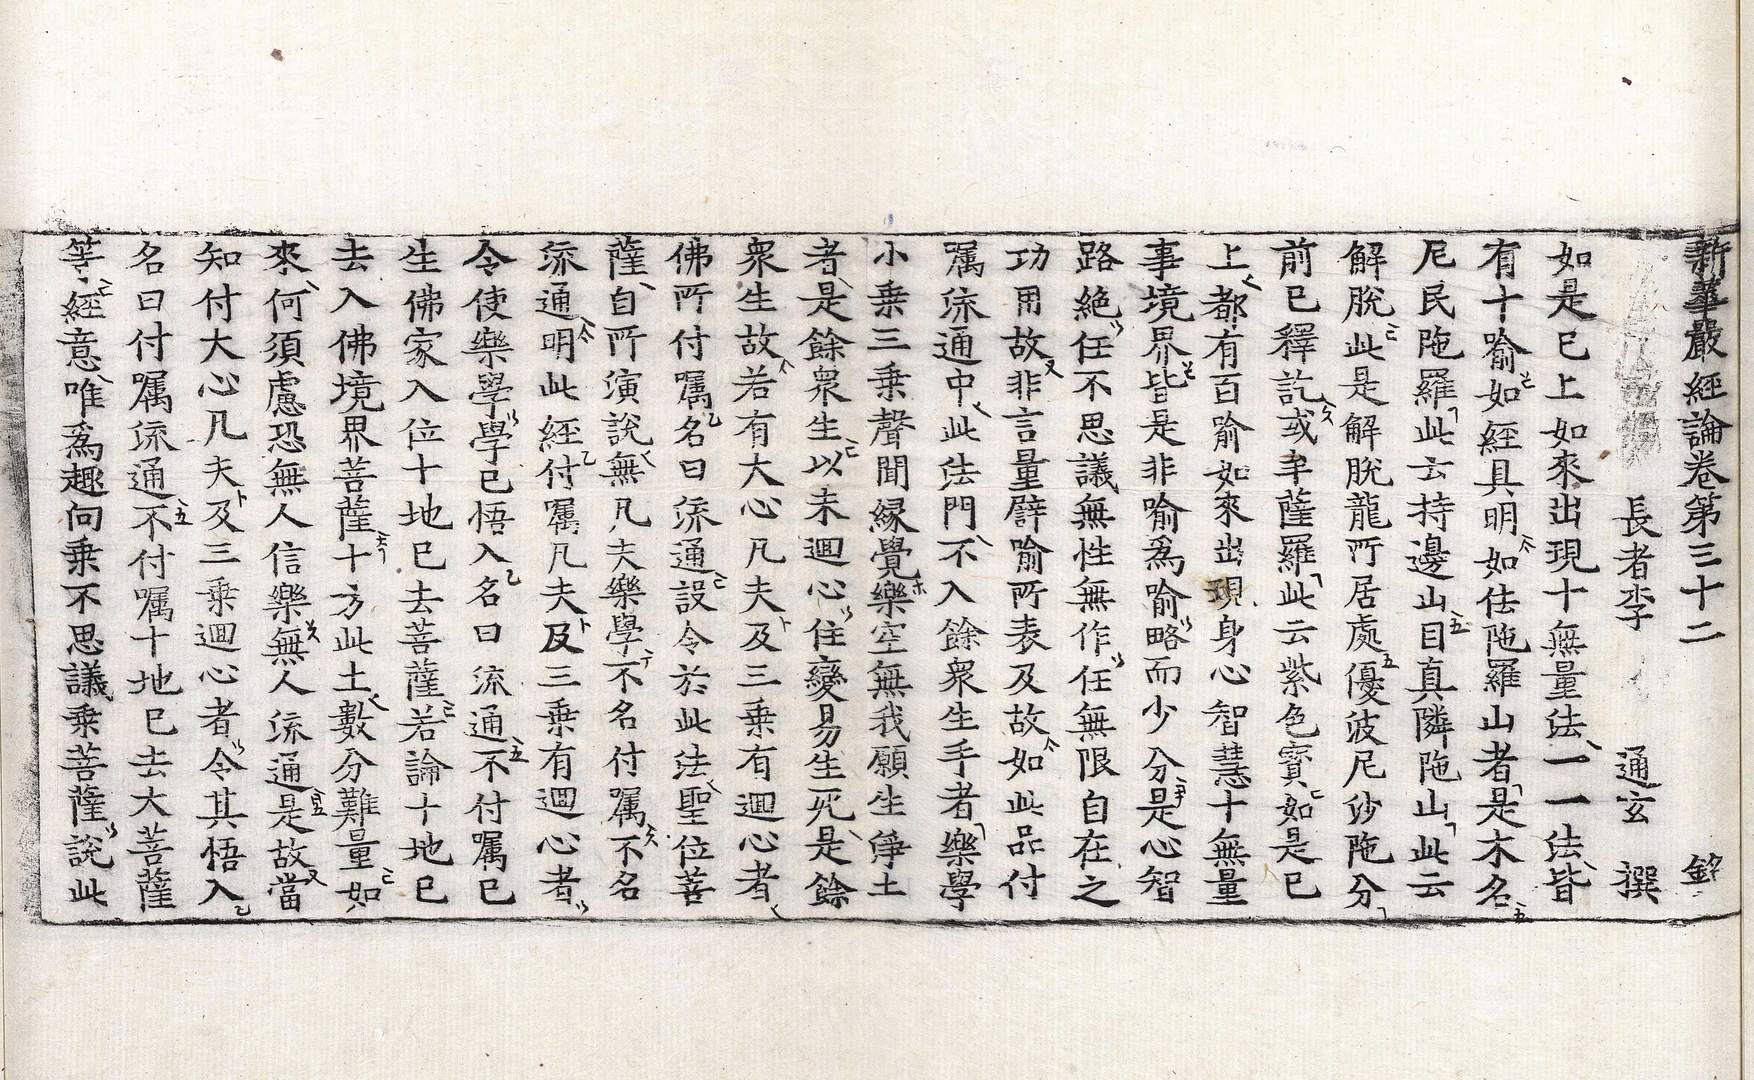 新華嚴經論卷第三十二 銘
長者李 通玄 撰
如是已上如來出現十無量法一一法皆
有十喻如經具明如佉陁羅山者是木名
尼民陁羅此云持邊山目真隣陁山此云
解脫此是解脫龍所居處優波尼沙陁分
前已釋訖或牟薩羅此云紫色寶如是已
上都有百喻如來出現身心智慧十無量
事境界皆是非喻爲喻略而少分是心智
路絕任不思議無性無作任無限自在之
功用故非言量譬喻所表及故如此品付
囑流通中此法門不入餘衆生手者樂學
小乗三乗聲聞緣覺樂空無我願生淨土
者是餘衆生以未迴心住變易生死是餘
衆生故若有大心凡夫及三乗有迴心者
佛所付囑名曰流通設令於此法聖位菩
薩自所演說無凡夫樂學不名付囑不名
流通明此經付囑凡夫及三乗有迴心者
令使樂學學已悟入名曰流通不付囑已
生佛家入位十地已去菩薩若論十地已
去入佛境界菩薩十方此土數分難量如
來何須慮恐無人信樂無人流通是故當
知付大心凡夫及三乗迴心者令其悟入
名曰付囑流通不付囑十地已去大菩薩
等經意唯爲趣向乗不思議乗菩薩說此